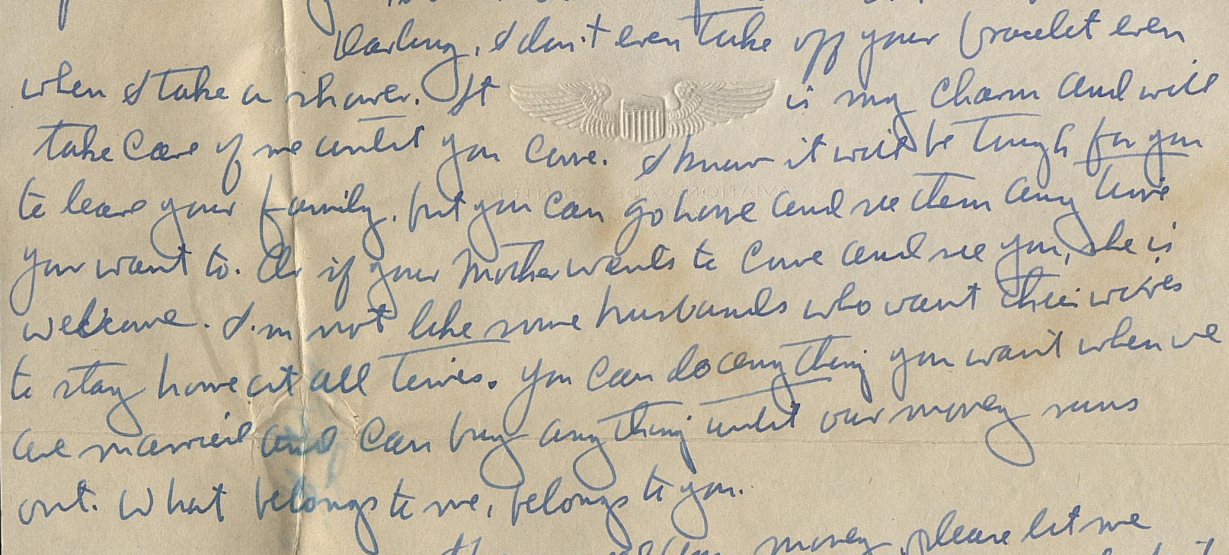 Darling, I don't even take off your bracelet even
when I take a shower. It is my charm and will
take care of me until you come. I know it will be tough for you
to leave your family, but you can go home and see them any time
you want to. Or if your mother wants to come and see you, she is
welcome. I'm not like some husbands who want their wives
to stay home at all times. You can do anything you want when we
are married and can buy anything until our money runs
out. What belongs to me, belongs to you.
money, please let me